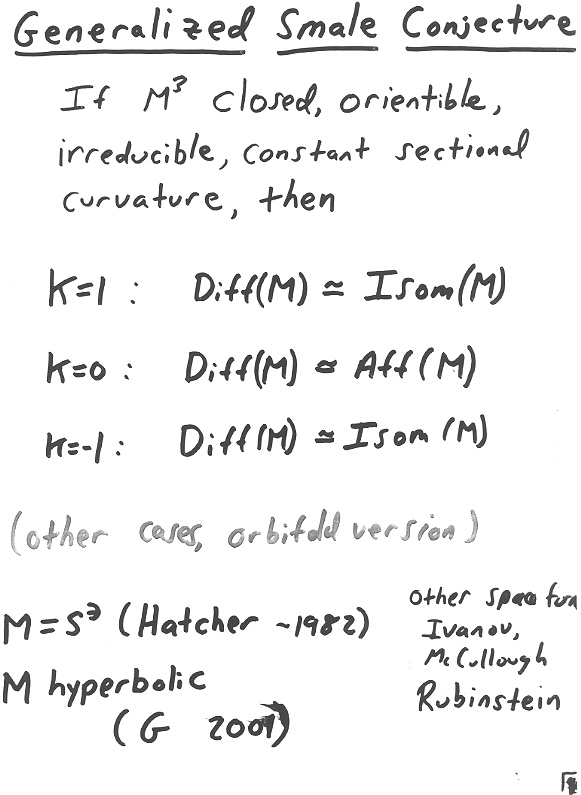 Generalized Smale Conjecture
If M³ closed, orientible,
irreducible, constant sectional
curvature, then
K=1 : Diff(M) ≃ Isom(M)
K=0 : Diff(M) ≃ Aff(M)
K=-1 : Diff(M) ≃ Isom(M)
(other cases, orbifold version)
M = S³ (Hatcher ~1982)
M hyperbolic
(G 2001)
Other space form
Ivanov,
McCullough
Rubinstein